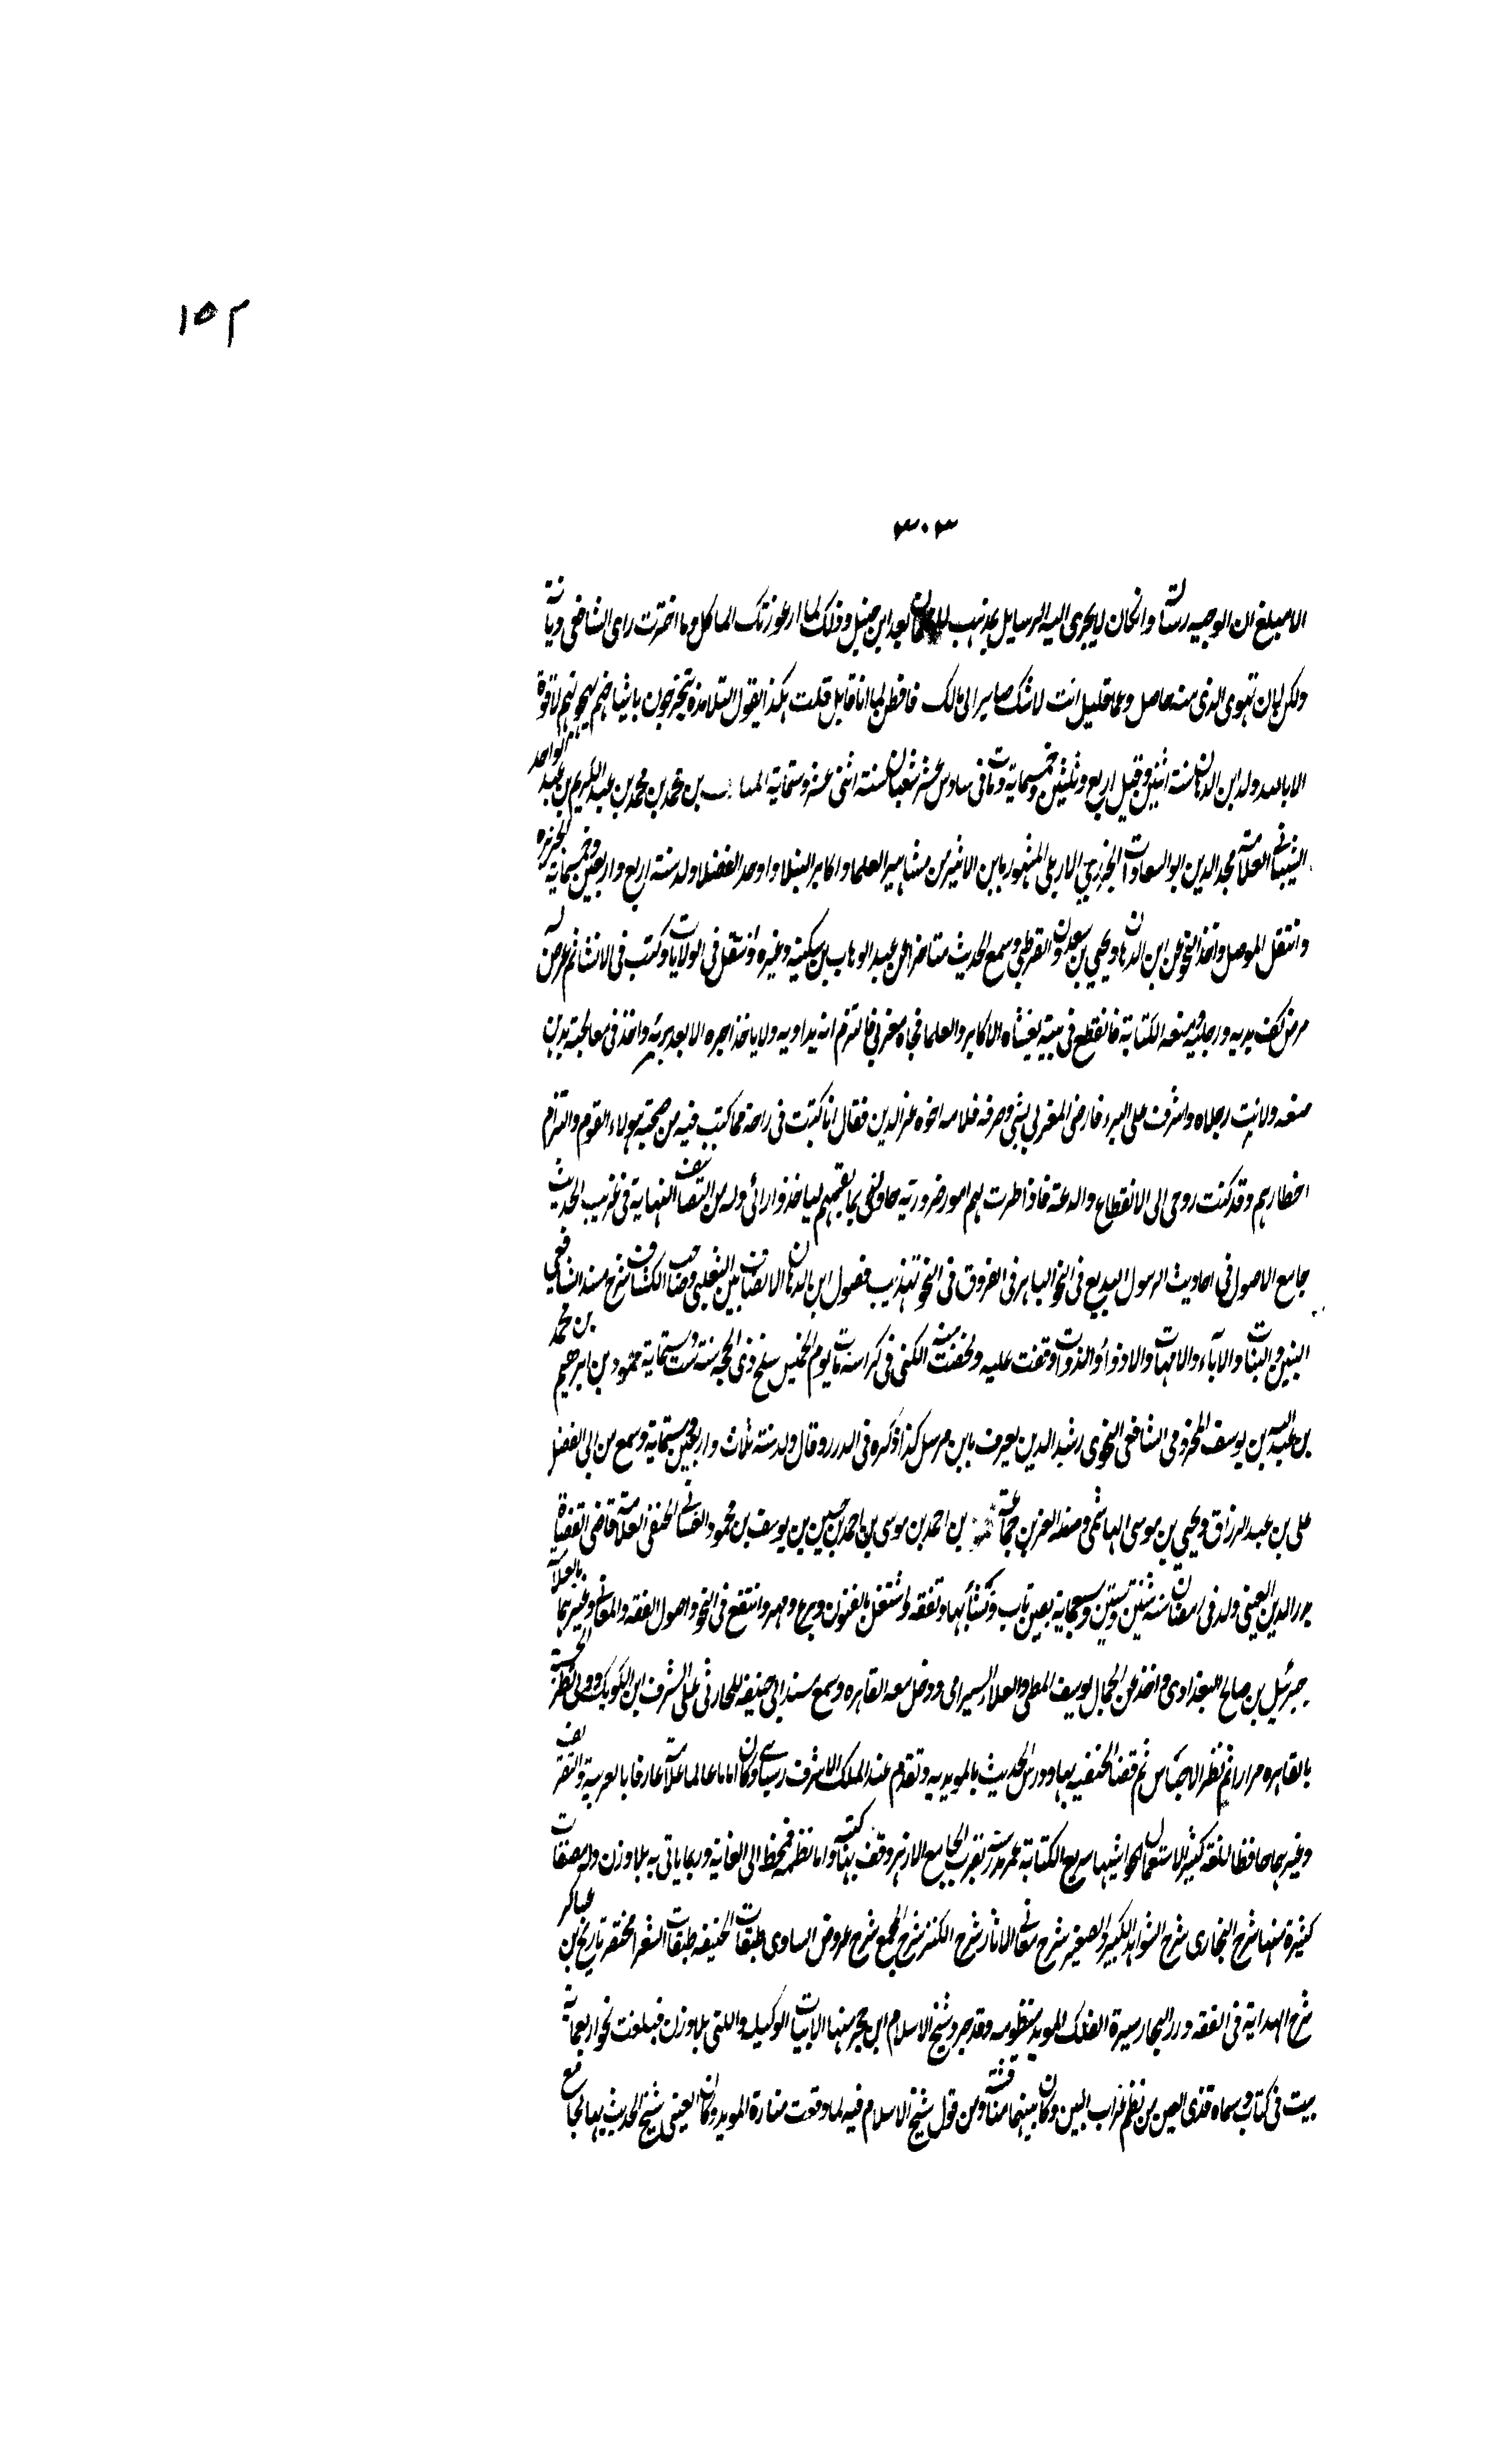 ١٥٢
٣٠٣
الا مبلغ ان الوجيه رسالة وان كان لا يجرى اليه الرسايل تمذهب للنعمان بعد ابن حنبل وذلك لما اعوزتك الماكل وما اخترت راى الشافعى ديانة
ولكن لان تهوى الذى منه حاصل وعما قليل انت لاشك صاير الى مالك فافطن لما انا قايل قلت هكذا يقول التلامذة يتخرجون باشياخهم
الا بالله ولد ابن الدهان سنة اثنين وقيل اربع وثلثين وخمسماية ومات فى سادس عشر شعبان سنة اثنى عشر وستماية المبارك بن محمد بن محمد بن عبد الكريم بن عبد الواحد
الشيبانى العلامة مجد الدين ابو السعادات الجزرى الاربلى المشهور بابن الاثير من مشاهير العلما واكابر النبلا واوحد الفضلا ولد سنة اربع واربعين وخمسماية بالجزيرة
وانتقل الموصل واخذ النحو عن ابن الدهان ويحيى بن سعدون القرطبى وسمع الحديث متاخرا من عبد الوهاب بن سكينة وغيره وتنقل فى الولايات وكتب فى الانشا ثم عرض له
مرض كف يديه ورجليه ومنعه الكتابة فانقطع فى بيته يغشاه الاكابر والعلما فجاه مغربى فالتزم انه يداويه ولا ياخذ اجره الا بعد برئه واخذ فى معالجته بدهن
صنعه ولانت رجلاه واشرف على البرء فارضى المغربى بشئ وصرفه فلامه اخوه عز الدين فقال انا كنت فى راحة مما كنت فيه من صحبة هولاء القوم والتزام
اخطارهم وقد سكنت روحى الى الانقطاع والدعة فاذا طرت لهم امور ضرورية جاونى بانفسهم لياخذوا رائى وله من التصانيف النهاية فى غريب الحديث
جامع الاصول فى احاديث الرسول البديع فى النحو الباهر فى الفروق فى النحو تهذيب فصول ابن الدهان الانصاف بين الثعلبى وصاحب الكشاف شرح مسند الشافعى
البنين والبنات والآباء والامهات والاذواء والذوات وقفت عليه ولخصت منه الكنى فى كراسة مات يوم الخميس سلخ ذى الحجة سنة ست وستماية محمود بن ابرهيم بن محمد
بن عبد الله بن يوسف المخزومى الشافعى النحوى رشيد الدين يعرف بابن مرسل كذا ذكره فى الدرر وقال ولد سنة ثلاث واربعين وستماية وسمع من ابى الفضل
على بن عبد الرزاق ويحيى بن موسى الهاشمى وعنه العز بن جماعة بن احمد بن موسى بن احمد بن حسين بن يوسف بن محمود العنتابى الحنفى العلامة قاضى القضاة
بدر الدين العينى ولد فى رمضان سنة ثنتين وستين وسبعماية بعين تاب ونشأ بها وتفقه واشتغل بالفنون وبرع ومهر وانتفع فى النحو واصول الفقه والمعانى وغيرها بالعلامة
جبرئيل بن صالح البغدادى واخذ عن الجمال يوسف الملطى والعلاء السيرامى ودخل معه القاهره وسمع مسند ابى حنيفه للحارثى على الشرف ابن الكويك وولى نظر الحسبة
بالقاهره مرارا ثم نظر الاحباس ثم قضا الحنفيه بها ودرس الحديث بالمويديه وتقدم عند الملك الاشرف برسباى وكان اماما عالما علامة عارفا بالعربية والتصريف
وغيرهما حافظا للغة كثير الاستعمال لحواشيها سريع الكتابة عمر مدرسة بقرب الجامع الازهر ووقف بها كتبه واما نظمه فمنحط الى الغاية وربما ياتى به بلا وزن وله مصنفات
كثيرة منها شرح البخارى شرح الشواهد الكبير والصغير شرح معانى الاثار شرح الكنز شرح المجمع شرح عروض الساوى طبقات الحنيفه طبقات الشعرا مختصر تاريخ ابن عساكر
شرح الهداية فى الفقه درر البحار سيرة الملك المويد منظومه وقد جرد شيخ الاسلام ابن حجر منها الابيات الركيك واللتى بلا وزن فبلغت نحو اربعماية
بيت فى كتاب وسماه قذى العين من نظم غراب البين وكان بينهما منافسة ومن قول شيخ الاسلام فيه لما وقعت منارة المويد وكان العينى شيخ الحديث بها بجامع